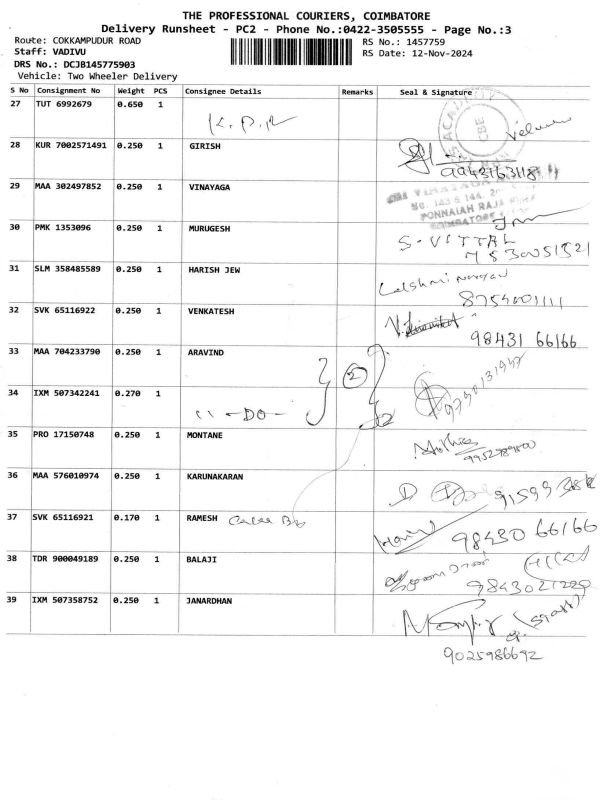 THE PROFESSIONAL COURIERS, COIMBATORE
Delivery Runsheet - PC2 - Phone No.:0422-3505555 - Page No.:3
Route: COKKAMPUDUR ROAD RS No.: 1457759
Staff: VADIVU RS Date: 12-Nov-2024
DRS No.: DCJB145775903
Vehicle: Two Wheeler Delivery
S No Consignment No Weight PCS Consignee Details Remarks Seal & Signature
27 TUT 6992679 0.650 1 K.P.R
28 KUR 7002571491 0.250 1 GIRISH
29 MAA 302497852 0.250 1 VINAYAGA
PONNAIAH RAJA
30 PMK 1353096 0.250 1 MURUGESH S.VITTAL
31 SLM 358485589 0.250 1 HARISH JEW
8754001111
32 SVK 65116922 0.250 1 VENKATESH
98431 66166
33 MAA 704233790 0.250 1 ARAVIND 2
34 IXM 507342241 0.270 1 -DO-
35 PRO 17150748 0.250 1 MONTANE
36 MAA 576010974 0.250 1 KARUNAKARAN
37 SVK 65116921 0.170 1 RAMESH 98430 66166
38 TDR 900049189 0.250 1 BALAJI
39 IXM 507358752 0.250 1 JANARDHAN (staff)
9025986692